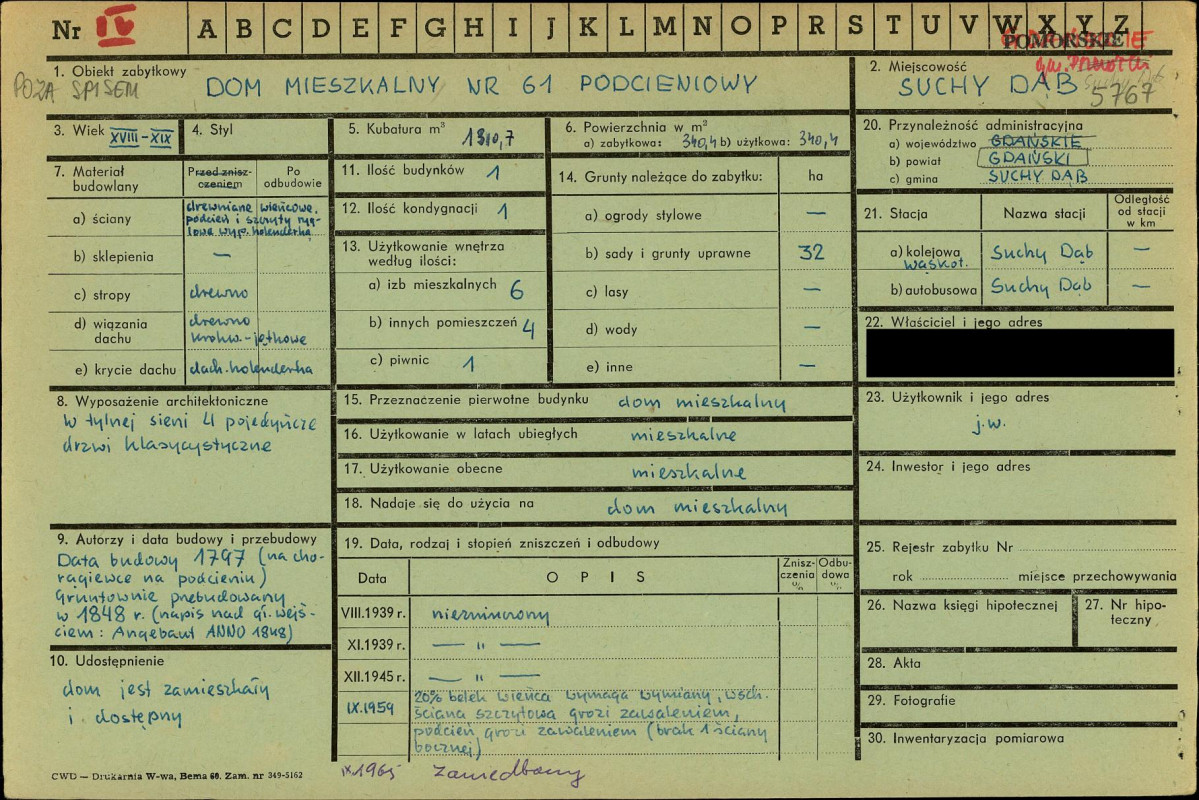 Nr IV A B C D E F G H I J K L M N O P R S T U V W X Y Z
POMORSKIE
POZA SPISEM
1. Obiekt zabytkowy
DOM MIESZKALNY NR 61 PODCIENIOWY
2. Miejscowość
SUCHY DĄB
5767
3. Wiek XVIII-XIX
4. Styl
5. Kubatura m³ 1310,7
6. Powierzchnia w m²
a) zabytkowa: 340,4 b) użytkowa: 340,4
20. Przynależność administracyjna
a) województwo GDAŃSKIE
b) powiat GDAŃSKI
c) gmina SUCHY DĄB
7. Materiał budowlany
Przed zniszczeniem
Po odbudowie
a) ściany drewniane wieńcowe,
podcień i szczyty ryg-
lowe wyp. holenderką
b) sklepienia —
c) stropy drewno
d) wiązania dachu drewno
krokw.-jętkowe
e) krycie dachu dach. holenderka
11. Ilość budynków 1
12. Ilość kondygnacji 1
13. Użytkowanie wnętrza
według ilości:
a) izb mieszkalnych 6
b) innych pomieszczeń 4
c) piwnic 1
14. Grunty należące do zabytku: ha
a) ogrody stylowe —
b) sady i grunty uprawne 32
c) lasy —
d) wody —
e) inne —
21. Stacja Nazwa stacji Odległość od stacji w km
a) kolejowa wąskot. Suchy Dąb —
b) autobusowa Suchy Dąb —
22. Właściciel i jego adres
8. Wyposażenie architektoniczne
W tylnej sieni 4 pojedyńcze
drzwi klasycystyczne
15. Przeznaczenie pierwotne budynku dom mieszkalny
16. Użytkowanie w latach ubiegłych mieszkalne
17. Użytkowanie obecne mieszkalne
18. Nadaje się do użycia na dom mieszkalny
23. Użytkownik i jego adres
j.w.
24. Inwestor i jego adres
9. Autorzy i data budowy i przebudowy
Data budowy 1797 (na cho-
rągiewce na podcieniu)
Gruntownie prebudowany
w 1848 r. (napis nad gł. wejś-
ciem: Angebaut ANNO 1848)
10. Udostępnienie
dom jest zamieszkały
i dostępny
19. Data, rodzaj i stopień zniszczeń i odbudowy
Data OPIS Zniszczenia % Odbudowa %
VIII.1939 r. niezniszczony
XI.1939 r. — " —
XII.1945 r. — " —
IX.1959 20% belek wieńca wymaga wymiany, wsch.
ściana szczytowa grozi zawaleniem,
podcień grozi zawaleniem (brak 1 ściany
bocznej)
IX.1965 zaniedbany
25. Rejestr zabytku Nr
rok miejsce przechowywania
26. Nazwa księgi hipotecznej
27. Nr hipoteczny
28. Akta
29. Fotografie
30. Inwentaryzacja pomiarowa
CWD — Drukarnia W-wa, Bema 60. Zam. nr 349-5162